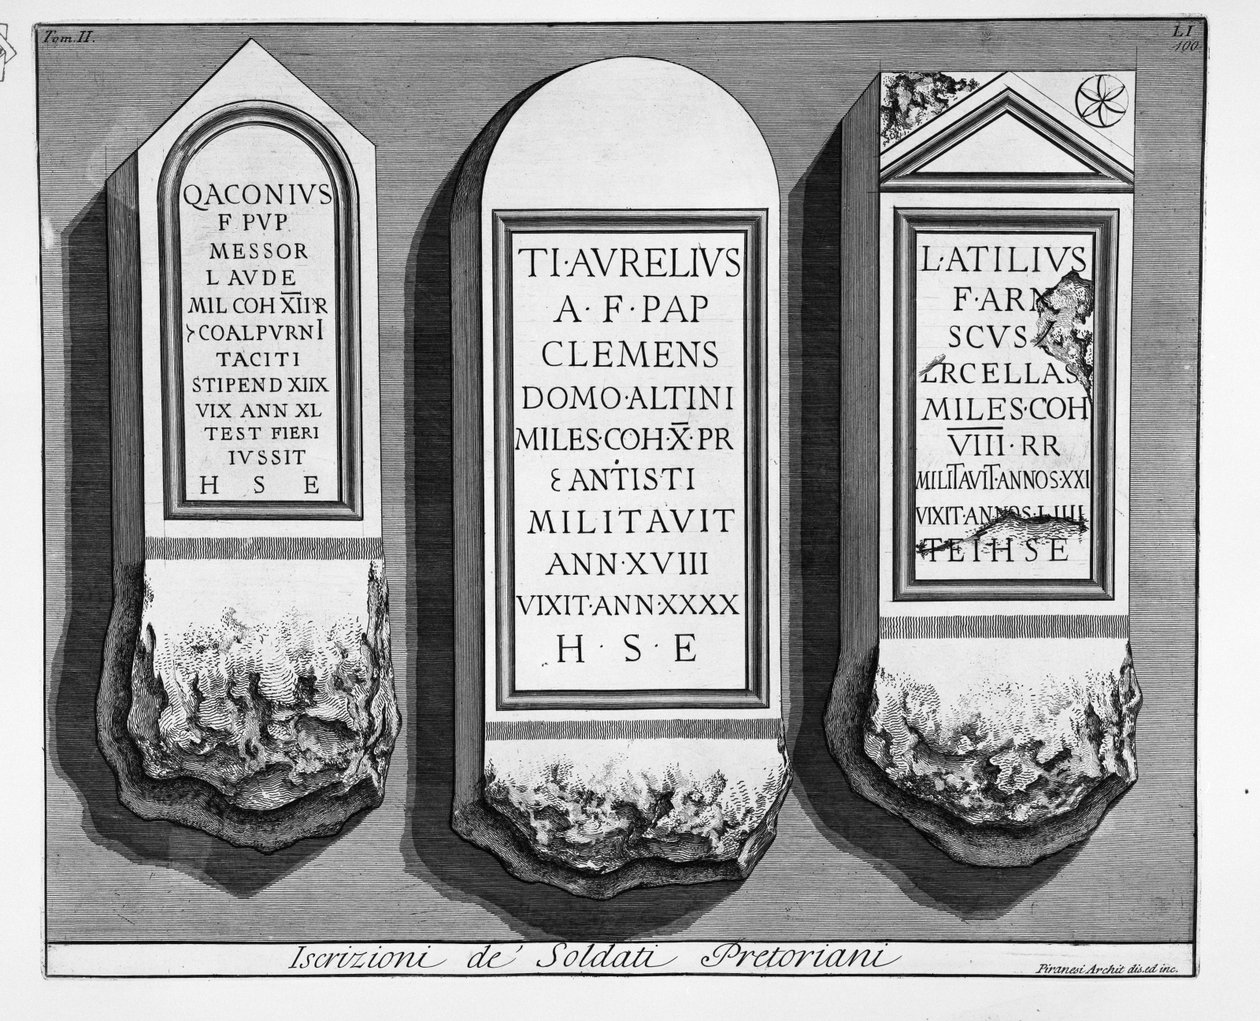 Tom. II.
LI
100
QACONIVS
F PVP
MESSOR
L AVDE
MIL COH X̅I̅I̅ R
COALPVRNI
TACITI
STIPEND XIIX
VIX ANN XL
TEST FIERI
IVSSIT
H S E
TI·AVRELIVS
A·F·PAP
CLEMENS
DOMO·ALTINI
MILES·COH·X̅·PR
Ɛ ANTISTI
MILITAVIT
ANN·XVIII
VIXIT·ANN·XXXX
H·S·E
L·ATILIVS
F·ARN
SCVS
ERCELLAS
MILES·COH
V̅I̅I̅I̅·RR
MILITAVIT·ANNOS·XXI
VIXIT·ANNOS·LIIII
TEIHSE
Iscrizioni de' Soldati Pretoriani
Piranesi Archit dis. ed inc.